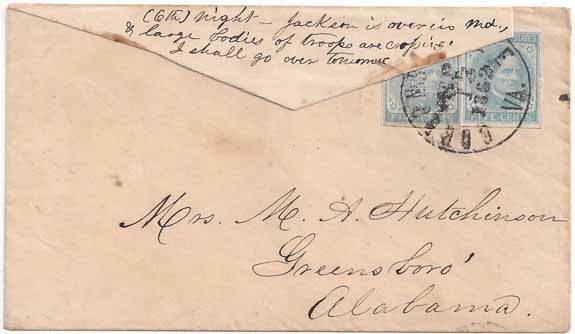 (6th) night - Jackson is over in Md.,
& large bodies of troops are crossing.
I shall go over tomorrow
FIVE CEN
FIVE CENT
VA.
Mrs. M. A. Hutchinson
Greensboro'
Alabama.